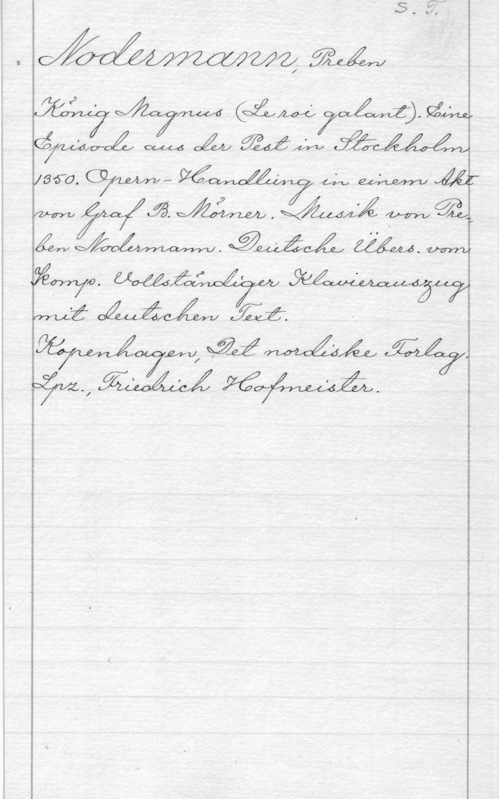 S. T.
Nodermann, Preben
König Magnus (Le roi galant). Eine
Episode aus der Pest in Stockholm
1350. Opern-Handlung in einem Akt
von Graf B. Mörner. Musik von Pre-
ben Nodermann. Deutsche Übers. vom
Komp. Vollständiger Klavierauszug
mit deutschen Text.
Kopenhagen, Det nordiske Forlag.
Lpz., Friedrich Hofmeister.